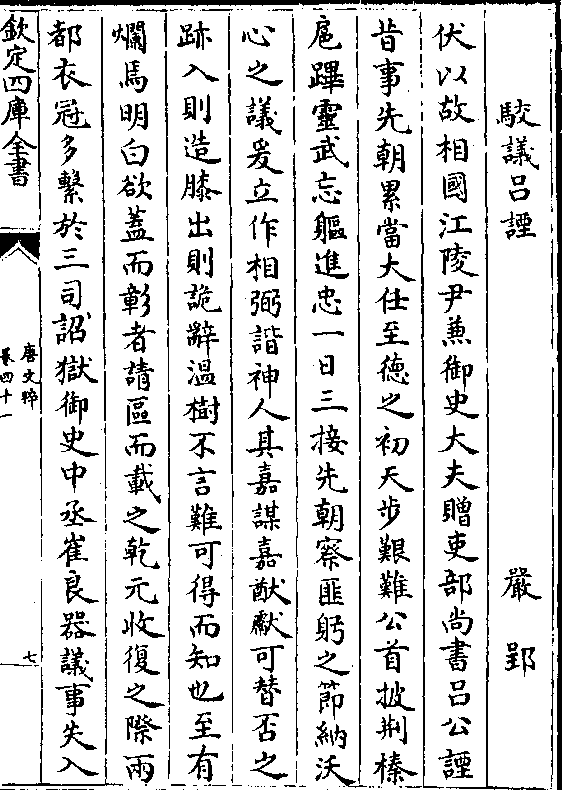 駁議呂諲　嚴郢
伏以故相國江陵尹兼御史大夫贈吏部尚書呂公諲
昔事先朝累當大任至德之初天步艱難公首披荆榛
扈蹕靈武忘軀進忠一日三接先朝察匪躬之節納沃
心之議爰立作相弼諧神人其嘉謀嘉猷獻可替否之
跡入則造膝出則詭辭溫樹不言難可得而知也至有
爛焉明白欲蓋而彰者請區而載之乾元收復之際兩
都衣冠多繫於三司詔獄御史中丞崔良器議事失入
欽定四庫全書
唐文粹
卷四十一
七